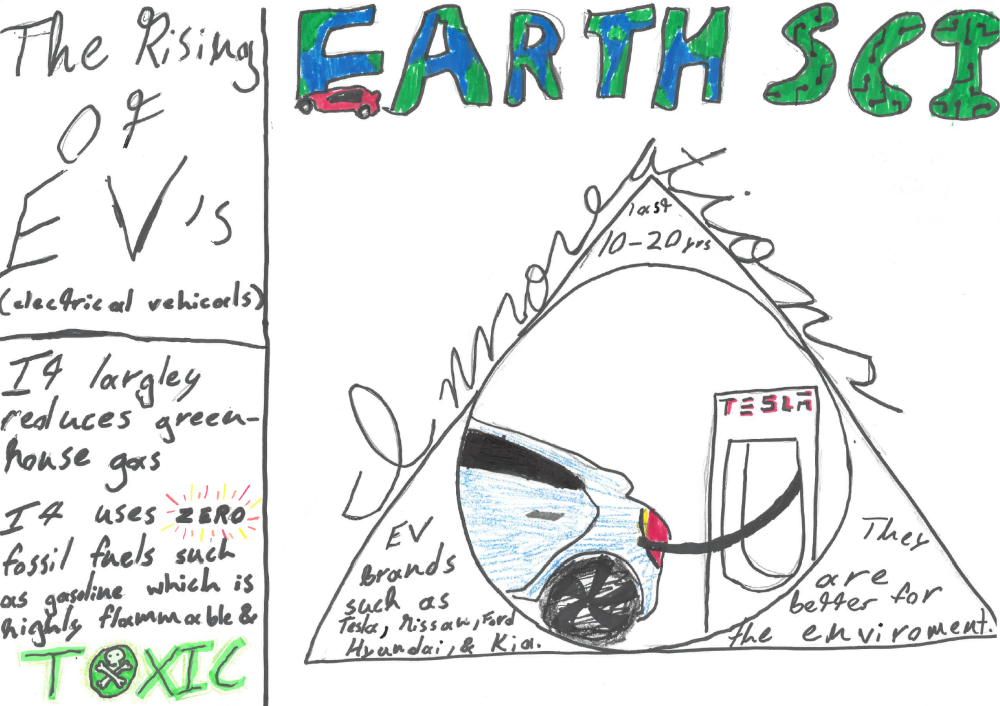 The Rising
Of
EV's
(electrical vehicals)
It largley
reduces green-
house gas
It uses ZERO
fossil fuels such
as gasoline which is
highly flammable &
TOXIC
EARTH SCI
last
10-20 yrs
TESLA
EV
Brands
such as
Tesla, Nissan, Ford
Hyundai, & Kia.
They
are
better for
the enviroment.